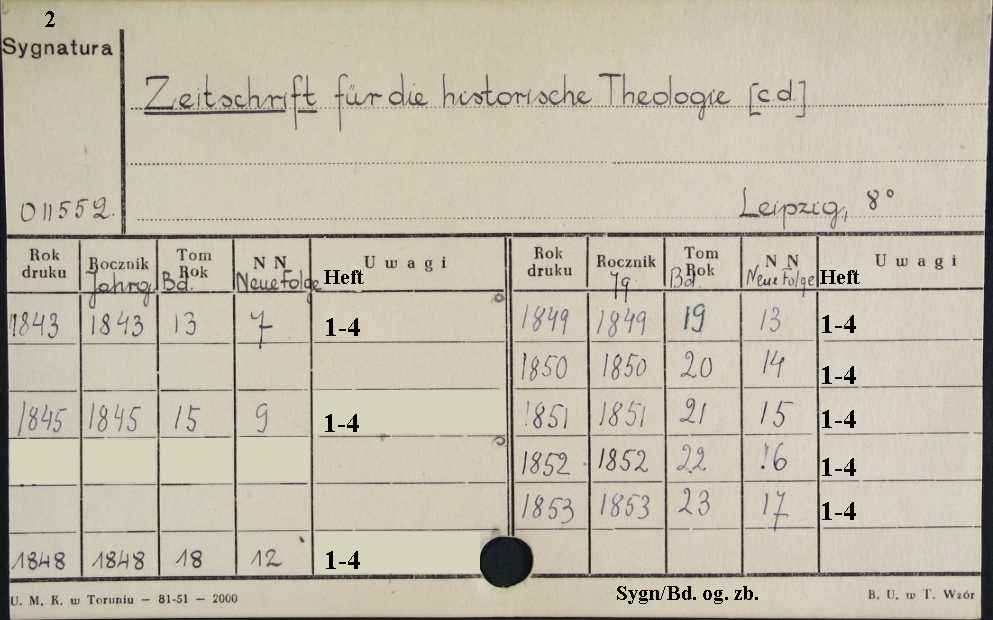 2
Sygnatura
Zeitschrift für die historische Theologie [c.d.]
011552.
Leipzig, 8°
Rok druku Rocznik Jahrg. Tom Rok Bd. N N Neue Folge Heft Uwagi
1843 1843 13 7 1-4
1845 1845 15 9 1-4
1848 1848 18 12 1-4
Rok druku Rocznik Jg. Tom Rok Bd. N N Neue Folge Heft Uwagi
1849 1849 19 13 1-4
1850 1850 20 14 1-4
1851 1851 21 15 1-4
1852 1852 22 16 1-4
1853 1853 23 17 1-4
U. M. K. w Toruniu — 81-51 — 2000
Sygn/Bd. og. zb.
B. U. w T. Wzór